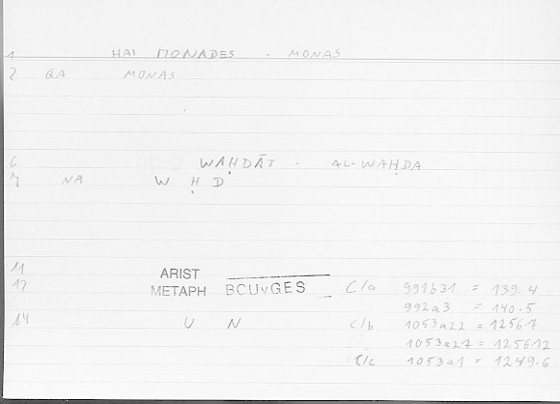 1 HAI MONADES - MONAS
2 QA MONAS
6 WAḤDĀT - AL-WAḤDA
7 NA W Ḥ D
11
12 ARIST METAPH BCUvGES C/a 991b31 = 139.4
992a3 = 140.5
14 U N C/b 1053a22 = 1256.7
1053a27 = 1256.12
C/c 1053a1 = 1249.6